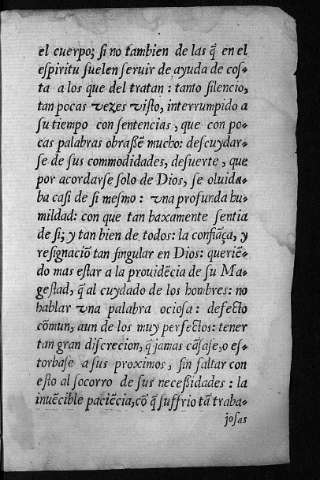 el cuerpo; ſi no tambien de las q̃ en el
eſpiritu ſuelen ſeruir de ayuda de coſ-
ta a los que del tratan: tanto ſilencio,
tan pocas vezes viſto, interrumpido a
ſu tiempo con ſentencias, que con po-
cas palabras obraſſẽ mucho: deſcuydar-
ſe de ſus commodidades, deſuerte, que
por acordarſe ſolo de Dios, ſe oluida-
ba caſi de ſi meſmo: vna profunda hu-
mildad: con que tan baxamente ſentia
de ſi; y tan bien de todos: la confiãça, y
reſignaciõ tan ſingular en Dios: queriẽ-
do mas eſtar a la prouidẽcia de ſu Ma-
geſtad, q̃ al cuydado de los hombres: no
hablar vna palabra ocioſa: defecto
cõmun, aun de los muy perfectos: tener
tan gran diſcrecion, q̃ jamas cãſaſe, o eſ-
torbaſe a ſus proximos, ſin faltar con
eſto al ſocorro de ſus neceſſidades: la
inuẽcible paciẽcia, cõ q̃ ſuffrio tã traba-
joſas